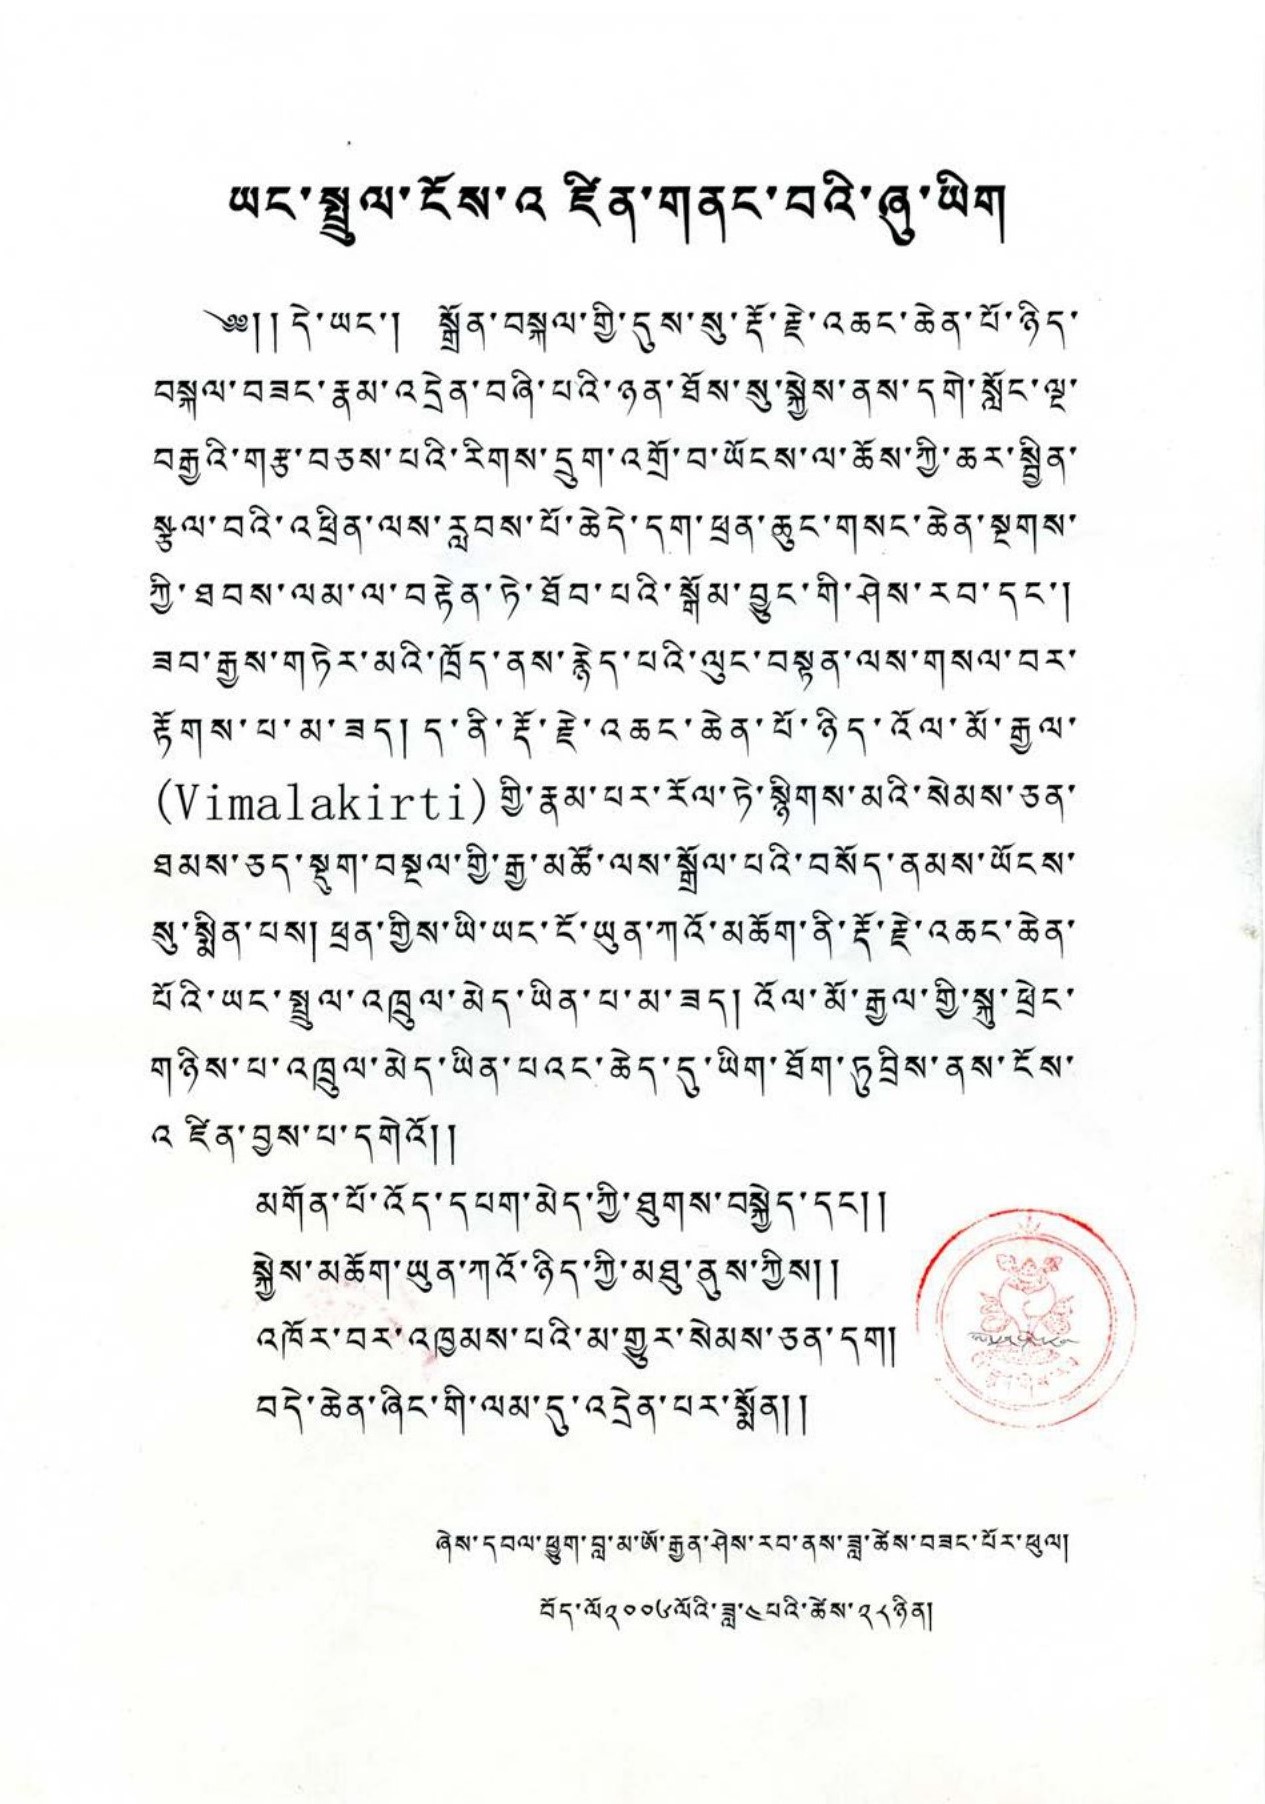 ཡང་སྤྲུལ་ངོས་འ ཛིན་གནང་བའི་ཞུ་ཡིག
༄༅།།དེ་ཡང་། སྔོན་བསྐལ་གྱི་དུས་སུ་རྡོ་རྗེ་འཆང་ཆེན་པོ་ཉིད་
བསྐལ་བཟང་རྣམ་འདྲེན་བཞི་པའི་ཉན་ཐོས་སུ་སྐྱེས་ནས་དགེ་སློང་ལྔ་
བརྒྱའི་གཙུ་བཅས་པའི་རིགས་དྲུག་འགྲོ་བ་ཡོངས་ལ་ཆོས་ཀྱི་ཆར་སྦྱིན་
སྩུལ་བའི་འཕྲིན་ལས་རླབས་པོ་ཆེདེ་དག་ཕྲན་ཆུང་གསང་ཆེན་སྔགས་
ཀྱི་ཐབས་ལམ་ལ་བརྟེན་ཏེ་ཐོབ་པའི་སྒོམ་བྱུང་གི་ཤེས་རབ་དང་།
ཟབ་རྒྱས་གཏེར་མའི་ཁྲོད་ནས་རྙེད་པའི་ལུང་བསྟན་ལས་གསལ་བར་
རྟོགས་པ་མ་ཟད། ད་ནི་རྡོ་རྗེ་འཆང་ཆེན་པོ་ཉིད་འོལ་མོ་རྒྱལ་
(Vimalakirti)གྱི་རྣམ་པར་རོལ་ཏེ་སྙིགས་མའི་སེམས་ཅན་
ཐམས་ཅད་སྡུག་བསྔལ་གྱི་རྒྱ་མཚོ་ལས་སྒྲོལ་པའི་བསོད་ནམས་ཡོངས་
སུ་སྨིན་པས། ཕྲན་གྱིས་ཡི་ཡང་ངོ་ཡུན་ཀའོ་མཆོག་ནི་རྡོ་རྗེ་འཆང་ཆེན་
པོའི་ཡང་སྤྲུལ་འཁྲུལ་མེད་ཡིན་པ་མ་ཟད། འོལ་མོ་རྒྱལ་གྱི་སྐུ་ཕྲེང་
གཉིས་པ་འཁྲུལ་མེད་ཡིན་པའང་ཆེད་དུ་ཡིག་ཐོག་ཏུབྲིས་ནས་ངོས་
འ ཛིན་བྱས་པ་དགེའོ།།
མགོན་པོ་འོད་དཔག་མེད་ཀྱི་ཐུགས་བསྐྱེད་དང།།
སྐྱེས་མཆོག་ཡུན་ཀའོ་ཉིད་ཀྱི་མཐུ་ནུས་ཀྱིས།།
འཁོར་བར་འཁྱམས་པའི་མ་གྱུར་སེམས་ཅན་དག།
བདེ་ཆེན་ཞིང་གི་ལམ་དུ་འདྲེན་པར་སྨོན།།
ཞེས་དབལ་ཕྱུག་བླ་མ་ཨོ་རྒྱན་ཤེས་རབ་ནས་ཟླ་ཚེས་བཟང་པོར་ཕུལ།
བོད་ལོ༢༠༠༦ལོའི་ཟླ་༤པའི་ཚེས་༢༨ཉིན།